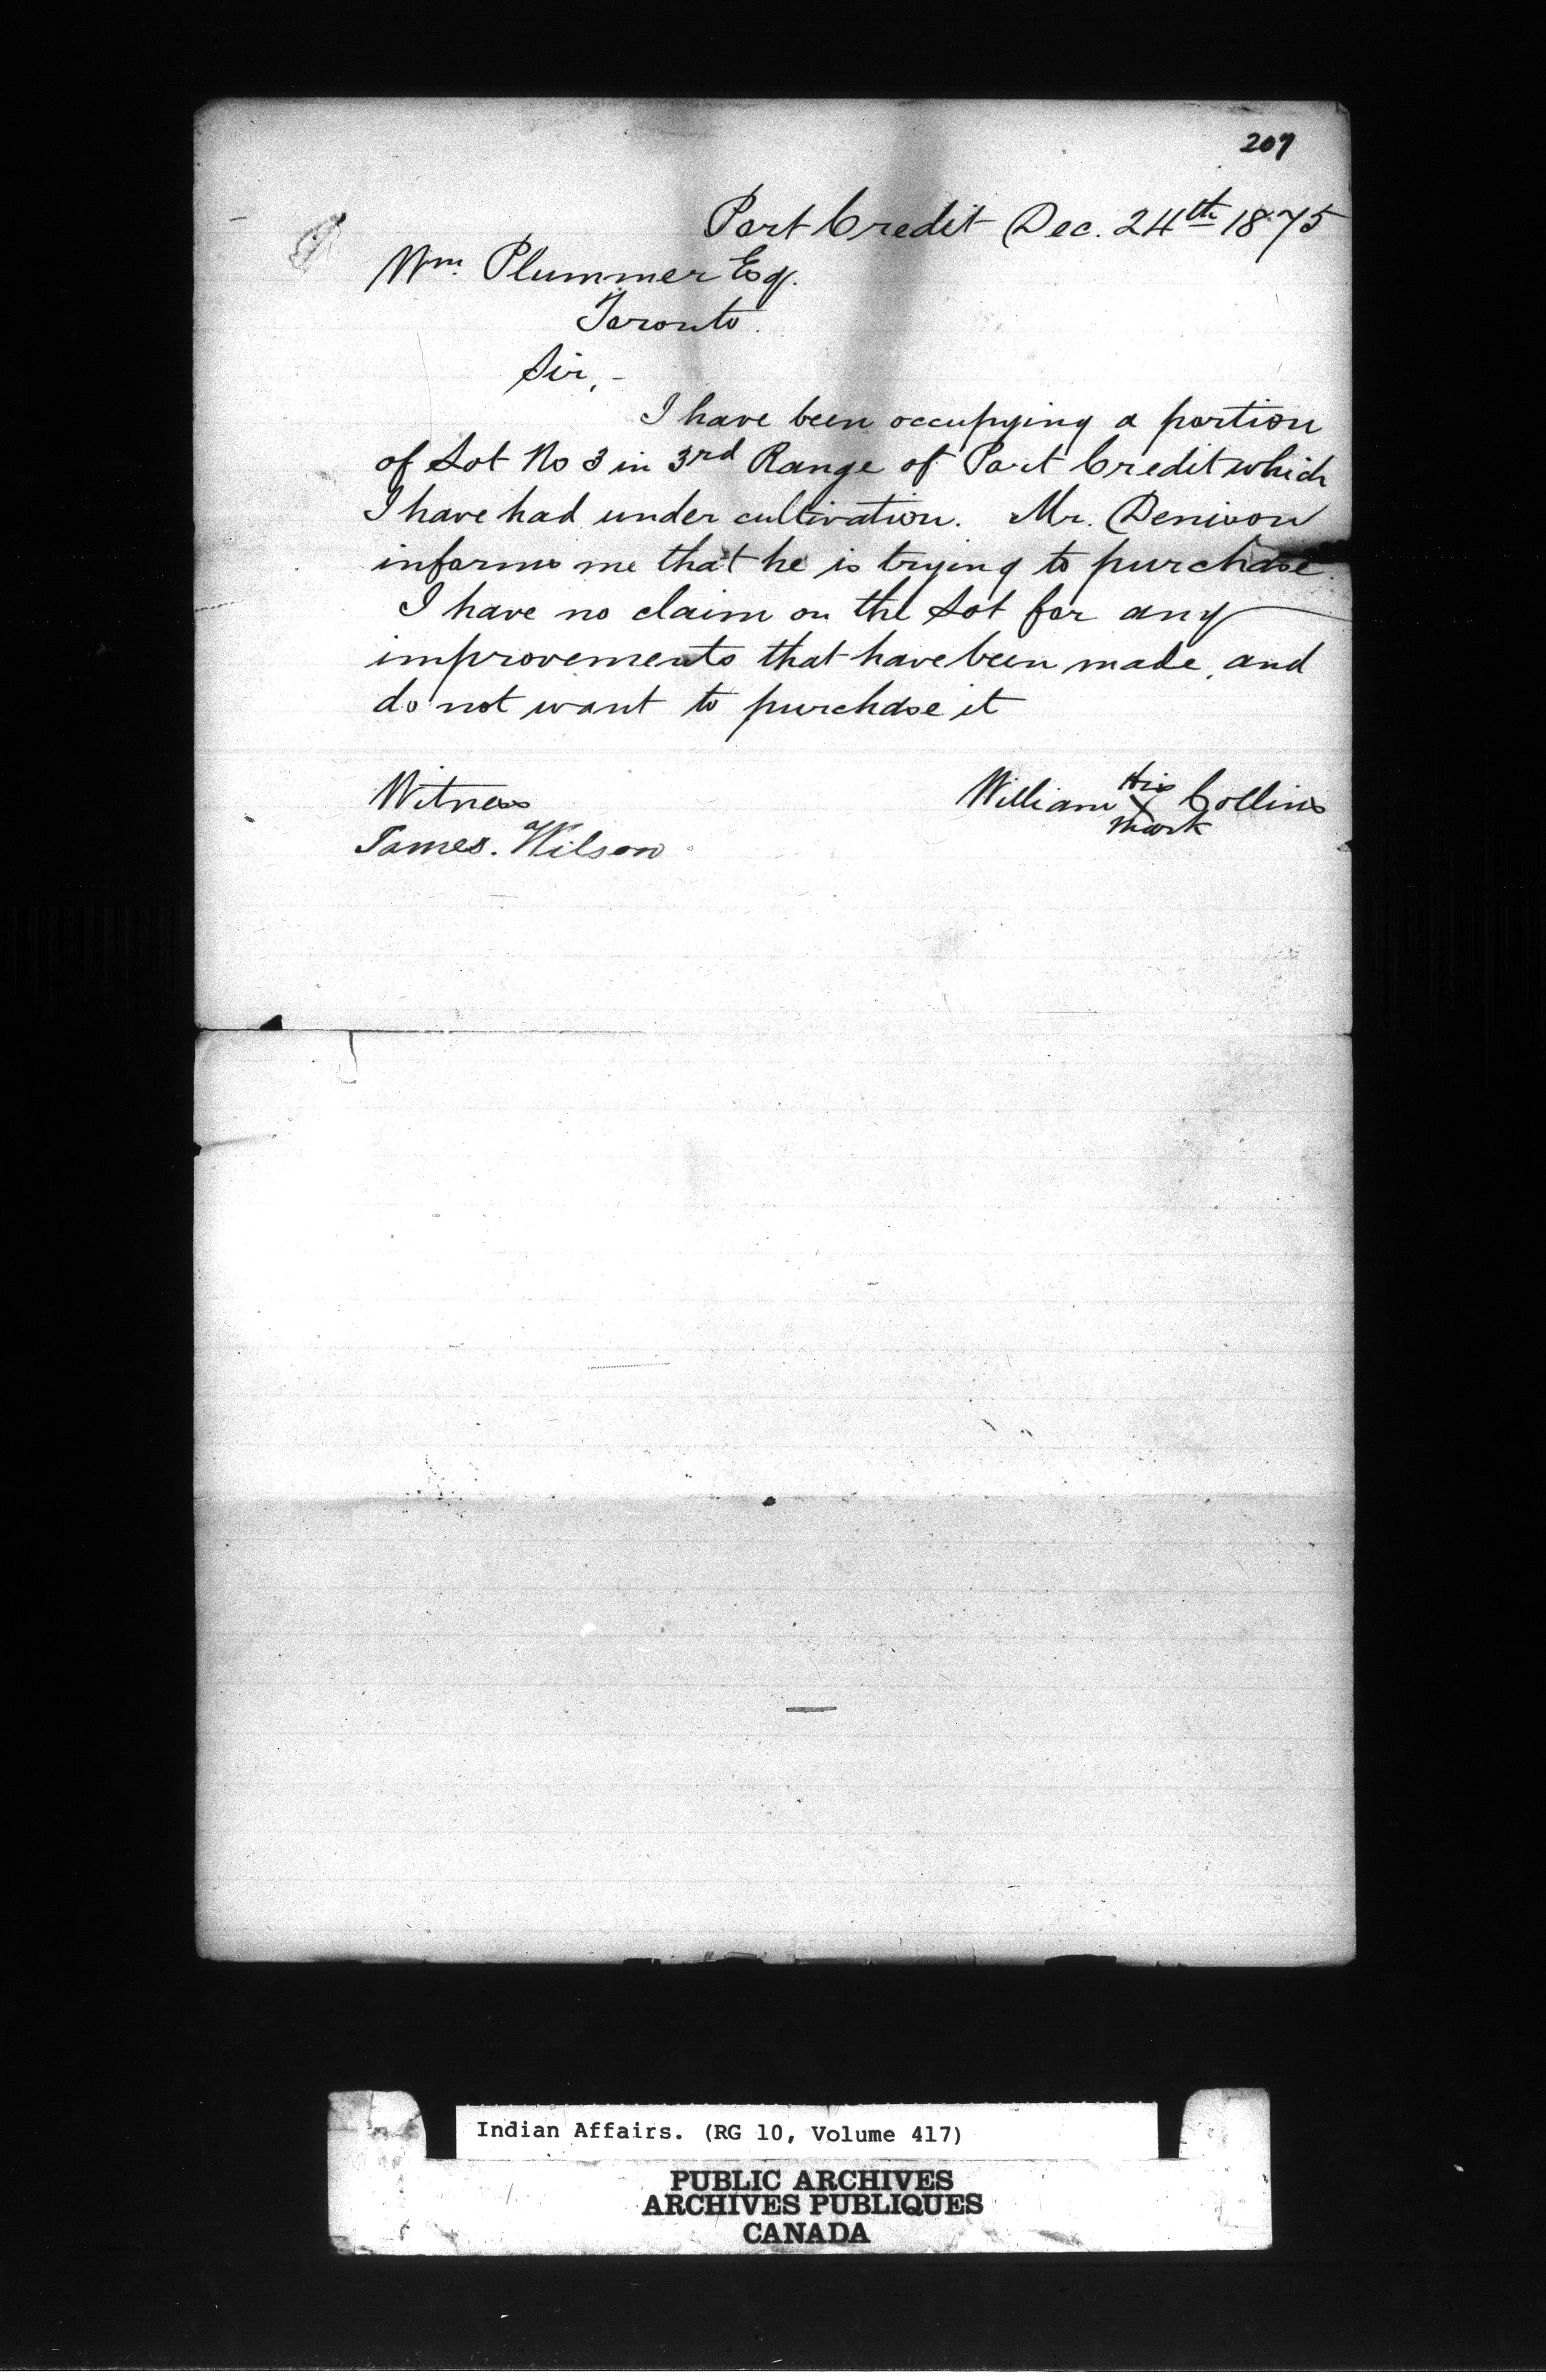 207
Port Credit Dec. 24th 1875
Wm. Plummer Esq.
Toronto.
Sir,-
I have been occupying a portion
of Lot No 3 in 3rd Range of Port Credit which
I have had under cultivation. Mr. Denison
informs me that he is trying to purchase.
I have no claim on the Lot for any
improvements that have been made, and
do not want to purchase it
Witness
William His X mark Collins
James. Wilson
Indian Affairs. (RG 10, Volume 417)
PUBLIC ARCHIVES
ARCHIVES PUBLIQUES
CANADA